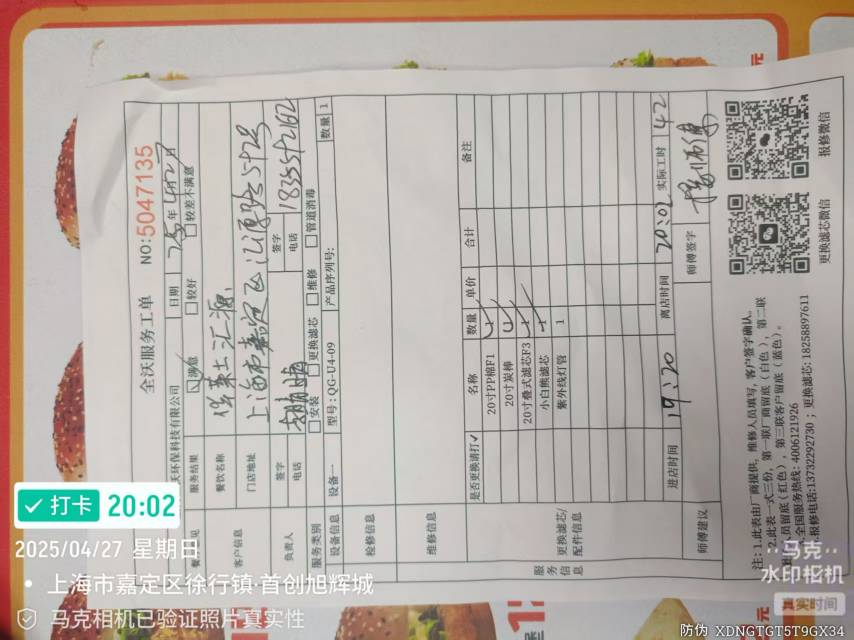 全沃服务工单
NO:5047135
沃环保科技有限公司
日期 25年4月27
服务结果 满意 较好 较差不满意
餐饮名称 华莱士汇源
门店地址 上海市嘉定区汇源路592号
客户信息
负责人 签字 签字
电话 电话 18355792162
服务类别 安装 更换滤芯 维修 管道消毒
设备信息 设备一 型号:QG-U4-09 产品序列号: 数量 1
检修信息
维修信息
服务信息
更换滤芯/配件信息
是否更换请打✓ 名称 数量 单价 合计 备注
20寸PP棉F1
20寸炭棒
20寸叠式滤芯F3
小白熊滤芯
紫外线灯管 1
进店时间 19:20 离店时间 20:02 实际工时 42
师傅建议 师傅签字
注:1.此表由厂商提供,维修人员填写,客户签字确认。
2.此表一式三份,第一联厂商留底(白色),第二联
员留底(红色),第三联客户留底(蓝色)。
全国服务热线:4006121926
报修电话:13732292730;更换滤芯:18258897611
更换滤芯微信 报修微信
打卡 20:02
2025/04/27 星期日
上海市嘉定区徐行镇·首创旭辉城
马克相机已验证照片真实性
马克
水印相机
真实时间
防伪 XDNGTGT5T9GX34